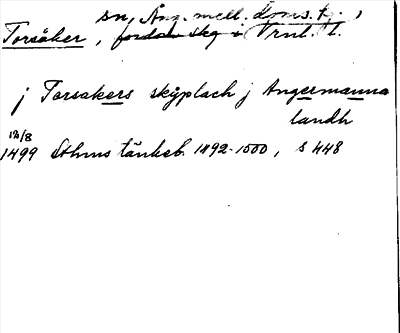 sn, Ång. mell. doms. tg.,
Torsåker, fordom skg i Vrnl. l.
j Torsakers skýplach j Angermanna
landh
12/8
1499 Sthms tänkeb. 1492-1500, s 448